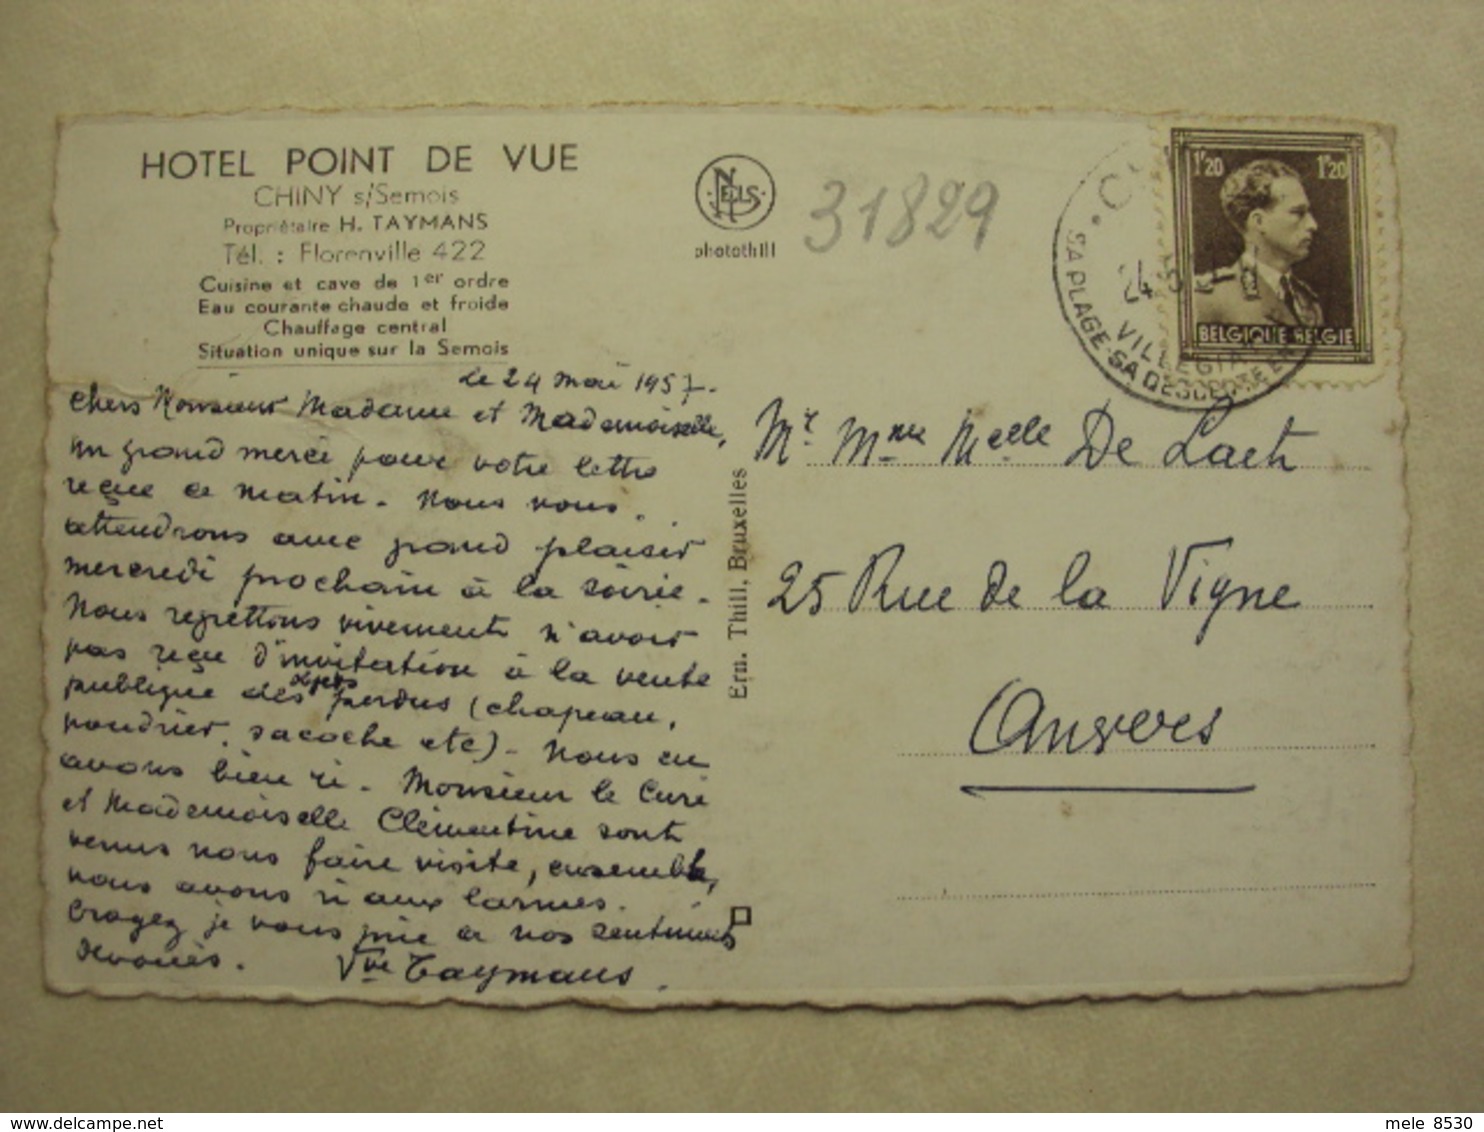 HOTEL POINT DE VUE
CHINY s/Semois
Propriétaire H. TAYMANS
Tél. : Florenville 422
Cuisine et cave de 1er ordre
Eau courante chaude et froide
Chauffage central
Situation unique sur la Semois
NELS
photothill
31829
1F20 1F20
BELGIQUE BELGIE
24
SA PLAGE-SA DESCENTE EN
VILLEGIA
Le 24 mai 1957.
Chers Monsieur Madame et Mademoiselle,
un grand merci pour votre lettre
reçue ce matin. Nous vous
attendrons avec grand plaisir
mercredi prochain à la soirée.
Nous regrettons vivement n'avoir
pas reçu d'invitation à la vente
publique des objets perdus (chapeau,
poudrier, sacoche etc). Nous en
avons bien ri. Monsieur le Curé
et Mademoiselle Clémentine sont
venus nous faire visite, ensemble,
nous avons ri aux larmes.
Croyez je vous prie à nos sentiments
dévoués. Vve Taymans.
Ern. Thill, Bruxelles
Mr. Mme Melle De Laet
25 Rue de la Vigne
Anvers
mele 8530